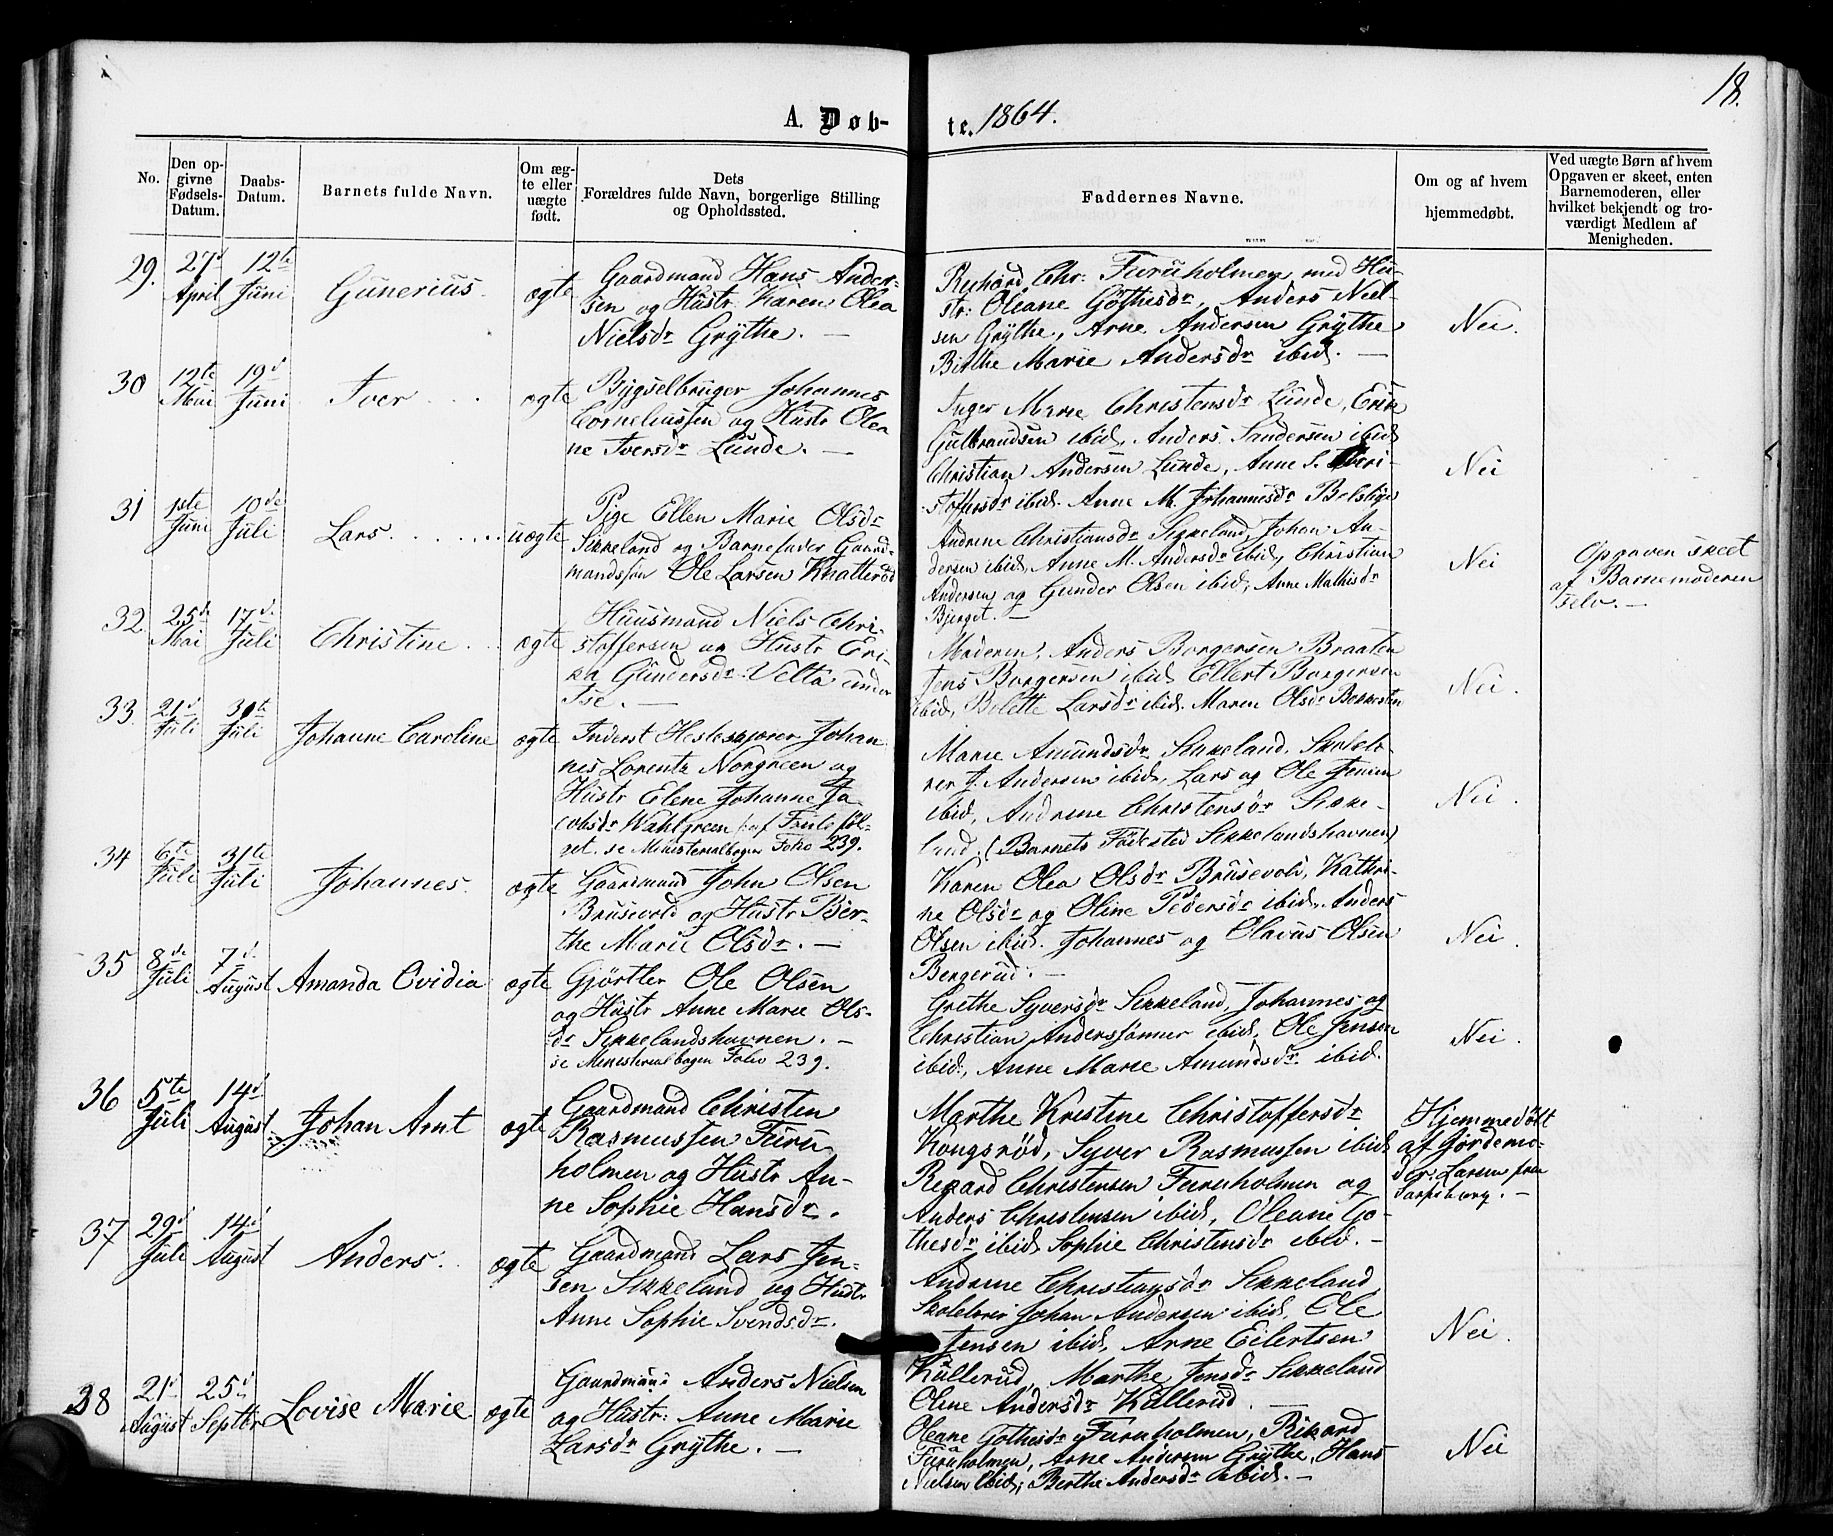 18.
A. Døb- te. 1864.
No.
Den op-
givne
Fødsels-
Datum.
Daabs-
Datum.
Barnets fulde Navn.
Om æg-
te eller
uægte
født.
Dets
Forældres fulde Navn, borgerlige Stilling
og Opholdssted.
Faddernes Navne.
Om og af hvem
hjemmedøbt.
Ved uægte Børn af hvem
Opgaven er skeet, enten
Barnemoderen, eller
hvilket bekjendt og tro-
værdigt Medlem af
Menigheden.
29.
27d
April
12te
Juni
Gunerius
ægte
Gaardmand Hans Ander-
sen og Hustr Karen Olea
Nielsdr Grythe. —
Richard Chr: Furuholmen med Hu-
str: Oleane Göthesdr, Anders Niel-
sen Grythe, Arne Andersen Grythe
Birthe Marie Andersdr ibid. —
Nei.
30
12te
Mai
19d
Juni
Iver
ægte
Bygselbruger Johannes
Corneliussen og Hustr Olea
ne Iversdr Lunde. —
Inger Marie Christensdr Lunde, Erik
Gulbrandsen ibid, Anders Sandersen ibid
Christian Andersen Lunde, Anne S. Chri-
stoffersdr ibid. Anne M. Johannesdr
Nei
31
1ste
Juni
10de
Juli
Lars
uægte
Pige Ellen Marie Olsdr
Sikkeland og Barnefader Gaard-
mandssøn Ole Larsen Knatterød
Andrine Christiansdr Sikkeland, Johan An-
dersen ibid, Anne M. Andersdr ibid, Christian
Andersen og Gunder Olsen ibid, Anne Mathisdr
Bjerget. —
Nei
Opgaven skeet
af Barnemoderen
selv. —
32.
25de
Mai
17de
Juli
Christine
ægte
Huusmand Niels Chri-
stoffersen og Hustr Eri-
ka Gundersdr Velta under
Tse. —
Moderen, Anders Borgersen Braaten
Jens Borgersen ibid Ellert Borgersen
ibid, Bolette Larsdr ibid. Maren Olsdr
Nei.
33.
21d
Juli
30te
Juli
Johanne Caroline
ægte
Inderst Johan
nes Lorentz Norgreen og
Hustr Elene Johanne Ja
cobsdr Wahlgreen
se Ministerialbogen Folio 239.
Marie Amundsdr Sikkeland, Skolelæ-
rer J. Andersen ibid, Lars og Ole Jensen
ibid, Andrine Christensdr Sikke-
land. (Barnets Fødested Sikkelandshavnen)
Nei.
34
6te
Juli
31te
Juli
Johannes
ægte
Gaardmand John Olsen
Brusevold og Hustr Ber-
the Marie Olsdr. —
Karen Olea Olsdr Brusevold, Kathri-
ne Olsdr og Oline Pedersdr ibid. Anders
Olsen ibid. Johannes og Olavus Olsen
Bergerud. —
Nei.
35
8de
Juli
7d
August
Amanda Ovidia
ægte
Gjørtler Ole Olsen
og Hustr Anne Marie Ols-
dr Sikkelandshavnen. —
se Ministerialbogen Folio 239.
Grethe Syversdr Sikkeland, Johannes og
Christian Anderssönner ibid, Ole Jensen
ibid, Anne Marie Amundsdr ibid.
Nei.
36
5te
Juli
14d
August
Johan Arnt
ægte
Gaardmand Christen
Rasmussen Furu
holmen og Hustr An-
ne Sophie Hansdr.
Marthe Kristine Christoffersdr
Kongsrød, Syver Rasmussen ibid
Regard Christensen Furuholmen og
Anders Christensen ibid, Oleane Go-
thesdr ibid Sophie Christensdr ibid. —
Hjemmedøbt
af Jordemo-
der Larsen fra
Sarpsborg. —
37
29d
Juli
14d
August
Anders.
ægte
Gaardmand Lars Jen-
sen Sikkeland og Hustr
Anne Sophie Svendsdr.
Andrine Christiansdr Sikkeland
Skolelærer Johan Andersen ibid. Ole
Jensen ibid, Arne Eilertsen
Kullerud, Marthe Jensdr Sikkeland
Oline Andersdr Kullerud. —
Nei.
38
21d
August
25d
Septbr
Lovise Marie
ægte
Gaardmand Anders Nielsen
og Hustr: Anne Marie
Larsdr Grythe. —
Oleane Gothesdr Furuholmen, Rikard
Furuholmen, Arne Andersen Grythe, Hans
Nielsen ibid, Berthe Andersdr ibid. —
Nei